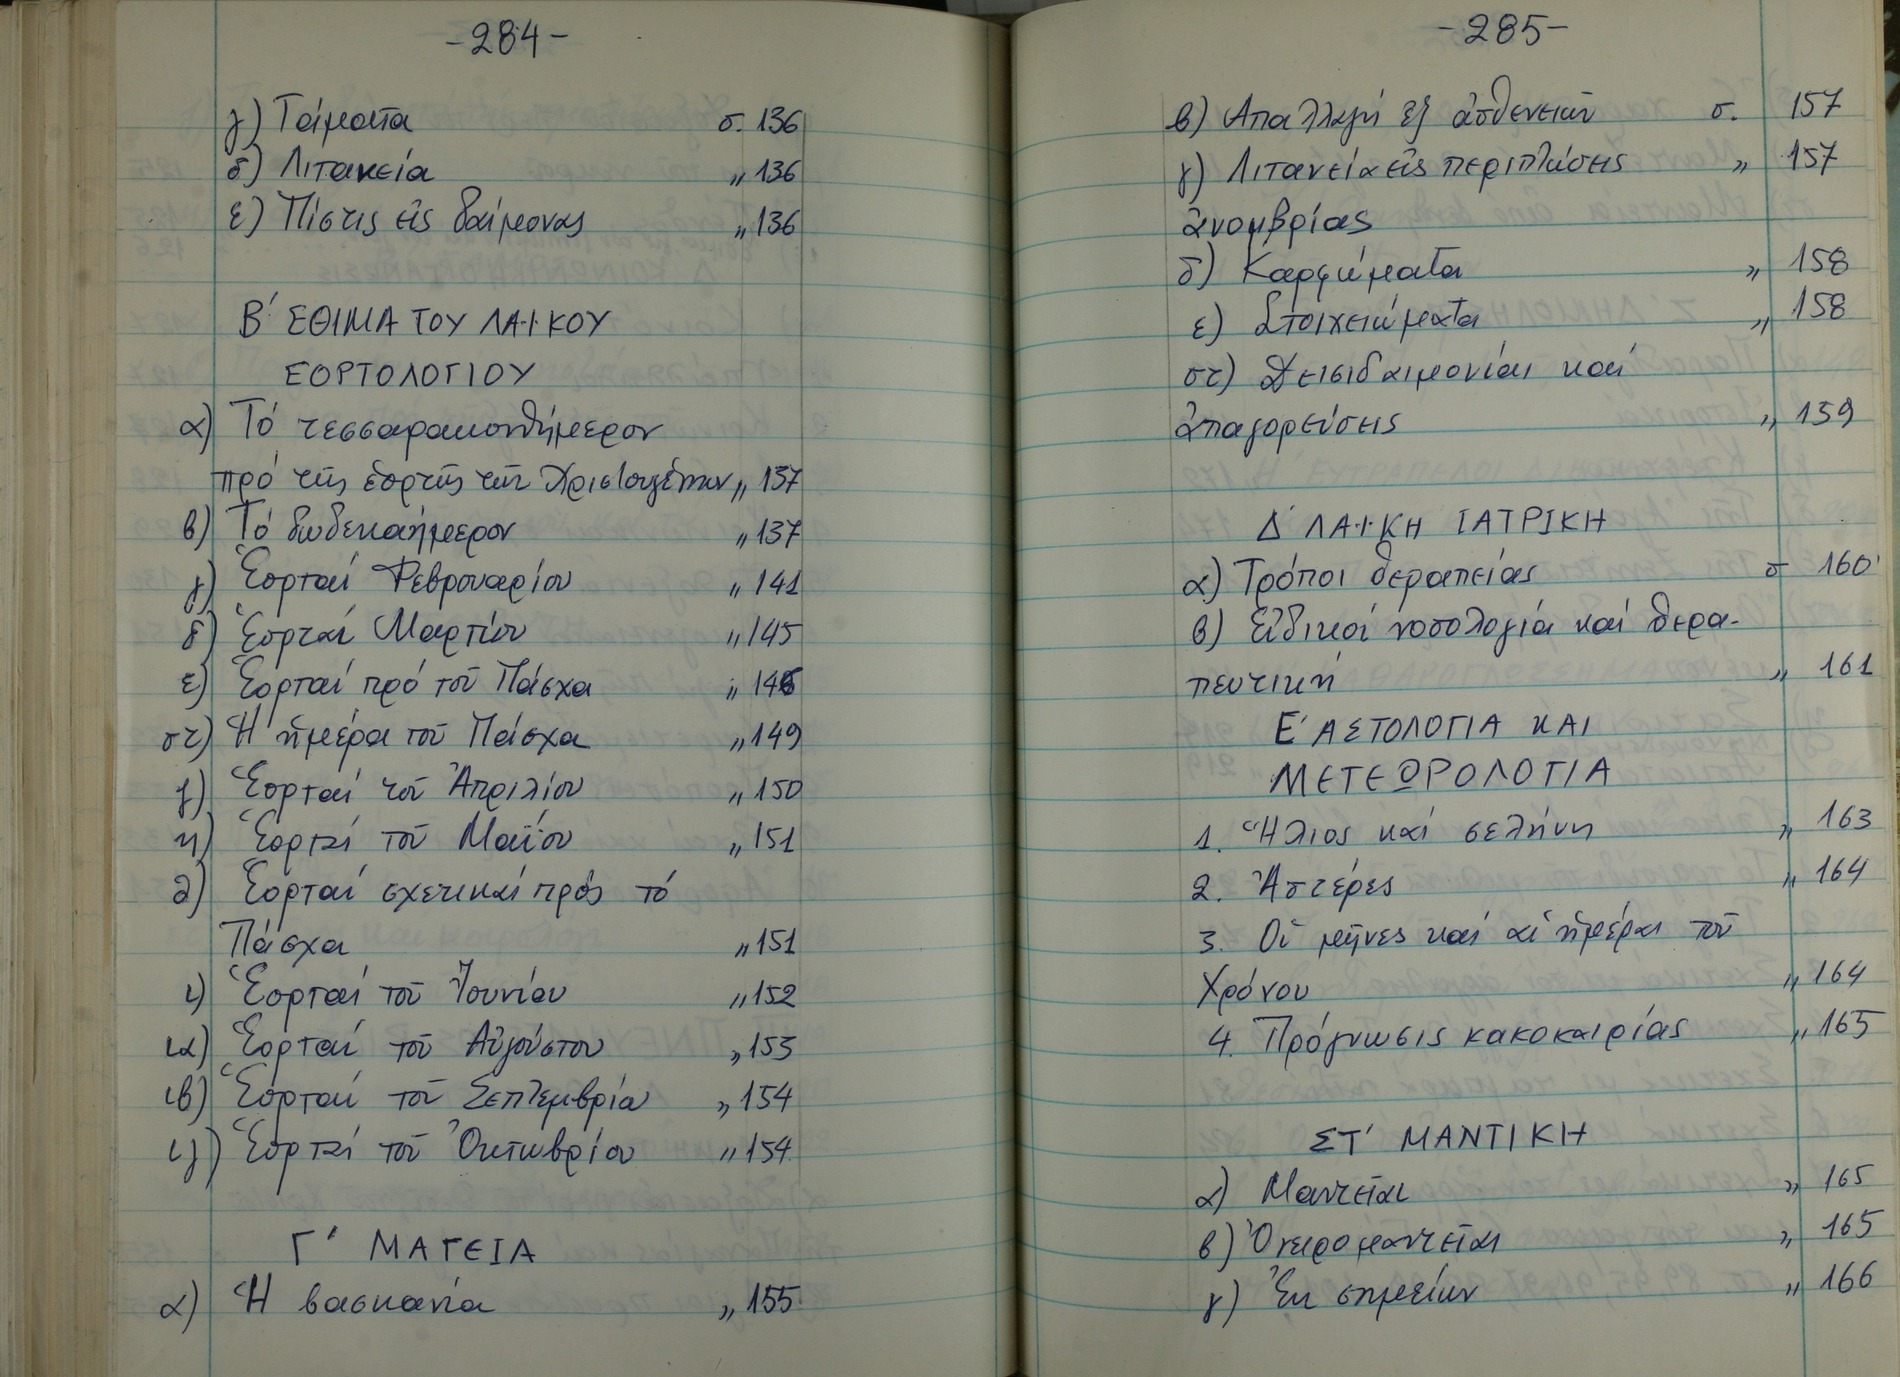 -284-
γ) Τάματα σ. 136
δ) Λιτανεία " 136
ε) Πίστις εἰς δαίμονας " 136
Β΄ ΕΘΙΜΑ ΤΟΥ ΛΑΪΚΟΥ
ΕΟΡΤΟΛΟΓΙΟΥ
α) Τό τεσσαρακονθήμερον
πρό τῆς ἑορτῆς τῶν Χριστουγέννων " 137
β) Τό δωδεκαήμερον " 137
γ) Ἑορταί Φεβρουαρίου " 141
δ) Ἑορταί Μαρτίου " 145
ε) Ἑορταί πρό τοῦ Πάσχα " 146
στ) Ἡ ἡμέρα τοῦ Πάσχα " 149
ζ) Ἑορταί τοῦ Ἀπριλίου " 150
η) Ἑορταί τοῦ Μαΐου " 151
θ) Ἑορταί σχετικαί πρός τό
Πάσχα " 151
ι) Ἑορταί τοῦ Ἰουνίου " 152
ια) Ἑορταί τοῦ Αὐγούστου " 153
ιβ) Ἑορταί τοῦ Σεπτεμβρίου " 154
ιγ) Ἑορταί τοῦ Ὀκτωβρίου " 154
Γ΄ ΜΑΓΕΙΑ
α) Ἡ βασκανία " 155
-285-
β) Απαλλαγή ἐξ ἀσθενειῶν σ. 157
γ) Λιτανεία εἰς περιπτώσεις " 157
ἀνομβρίας
δ) Καρφώματα " 158
ε) Στοιχειώματα " 158
στ) Δεισιδαιμονίαι καί
ἀπαγορεύσεις " 159
Δ΄ ΛΑΪΚΗ ΙΑΤΡΙΚΗ
α) Τρόποι θεραπείας σ 160
β) Εἰδικοί νοσολογία καί θερα-
πευτική " 161
Ε΄ ΑΣΤΟΛΟΓΙΑ ΚΑΙ
ΜΕΤΕΩΡΟΛΟΓΙΑ
1. Ἥλιος καί σελήνη " 163
2. Ἀστέρες " 164
3. Οἱ μῆνες καί αἱ ἡμέραι τοῦ
Χρόνου " 164
4. Πρόγνωσις κακοκαιρίας " 165
ΣΤ΄ ΜΑΝΤΙΚΗ
α) Μαντεῖαι " 165
β) Ὀνειρομαντεῖαι " 165
γ) Ἐκ σημείων " 166